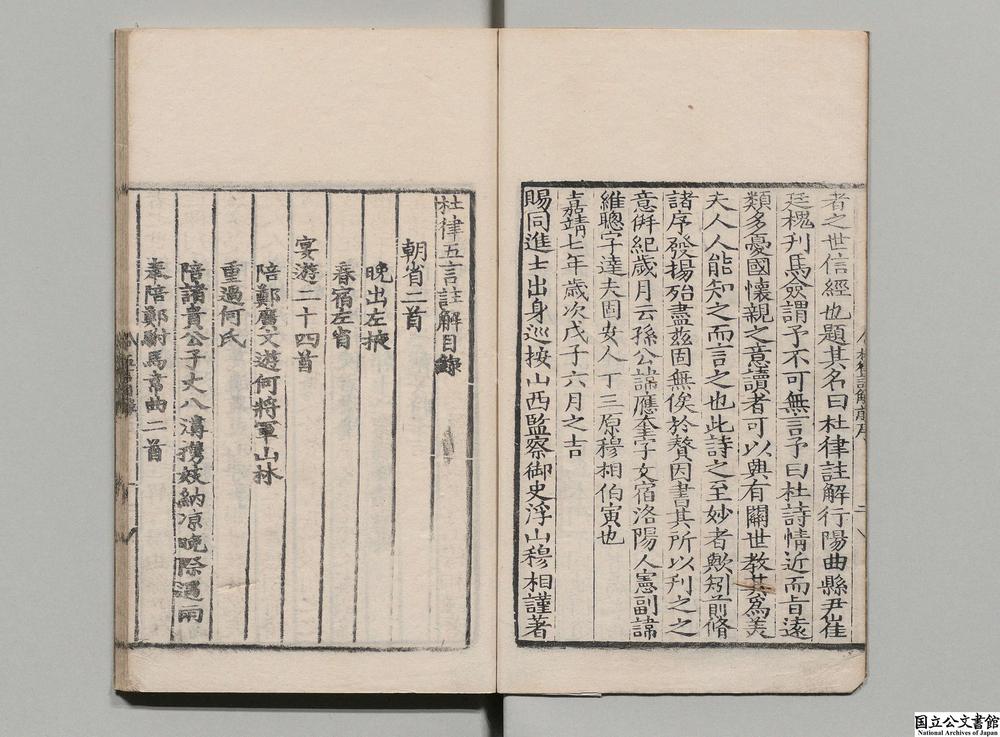 者之世信經也題其名曰杜律註解行陽曲縣尹崔
廷槐刋焉僉謂予不可無言予曰杜詩情近而旨遠
類多憂國懷親之意讀者可以興有關世教其爲美
夫人人能知之而言之也此詩之至妙者歟矧前脩
諸序發揚殆盡茲固無俟於贅因書其所以刋之之
意併紀歲月云孫公諱應奎字文宿洛陽人憲副諱
維聰字達夫固安人丁三原穆相伯寅也
嘉靖七年歲次戊子六月之吉
賜同進士出身巡按山西監察御史浮山穆相謹著
杜律五言註解目錄
朝省二首
晚出左掖
春宿左省
宴遊二十四首
陪鄭廣文遊何將軍山林
重過何氏
陪諸貴公子丈八溝携妓納凉晚際遇雨
奉陪鄭駙馬韋曲二首
国立公文書館
National Archives of Japan